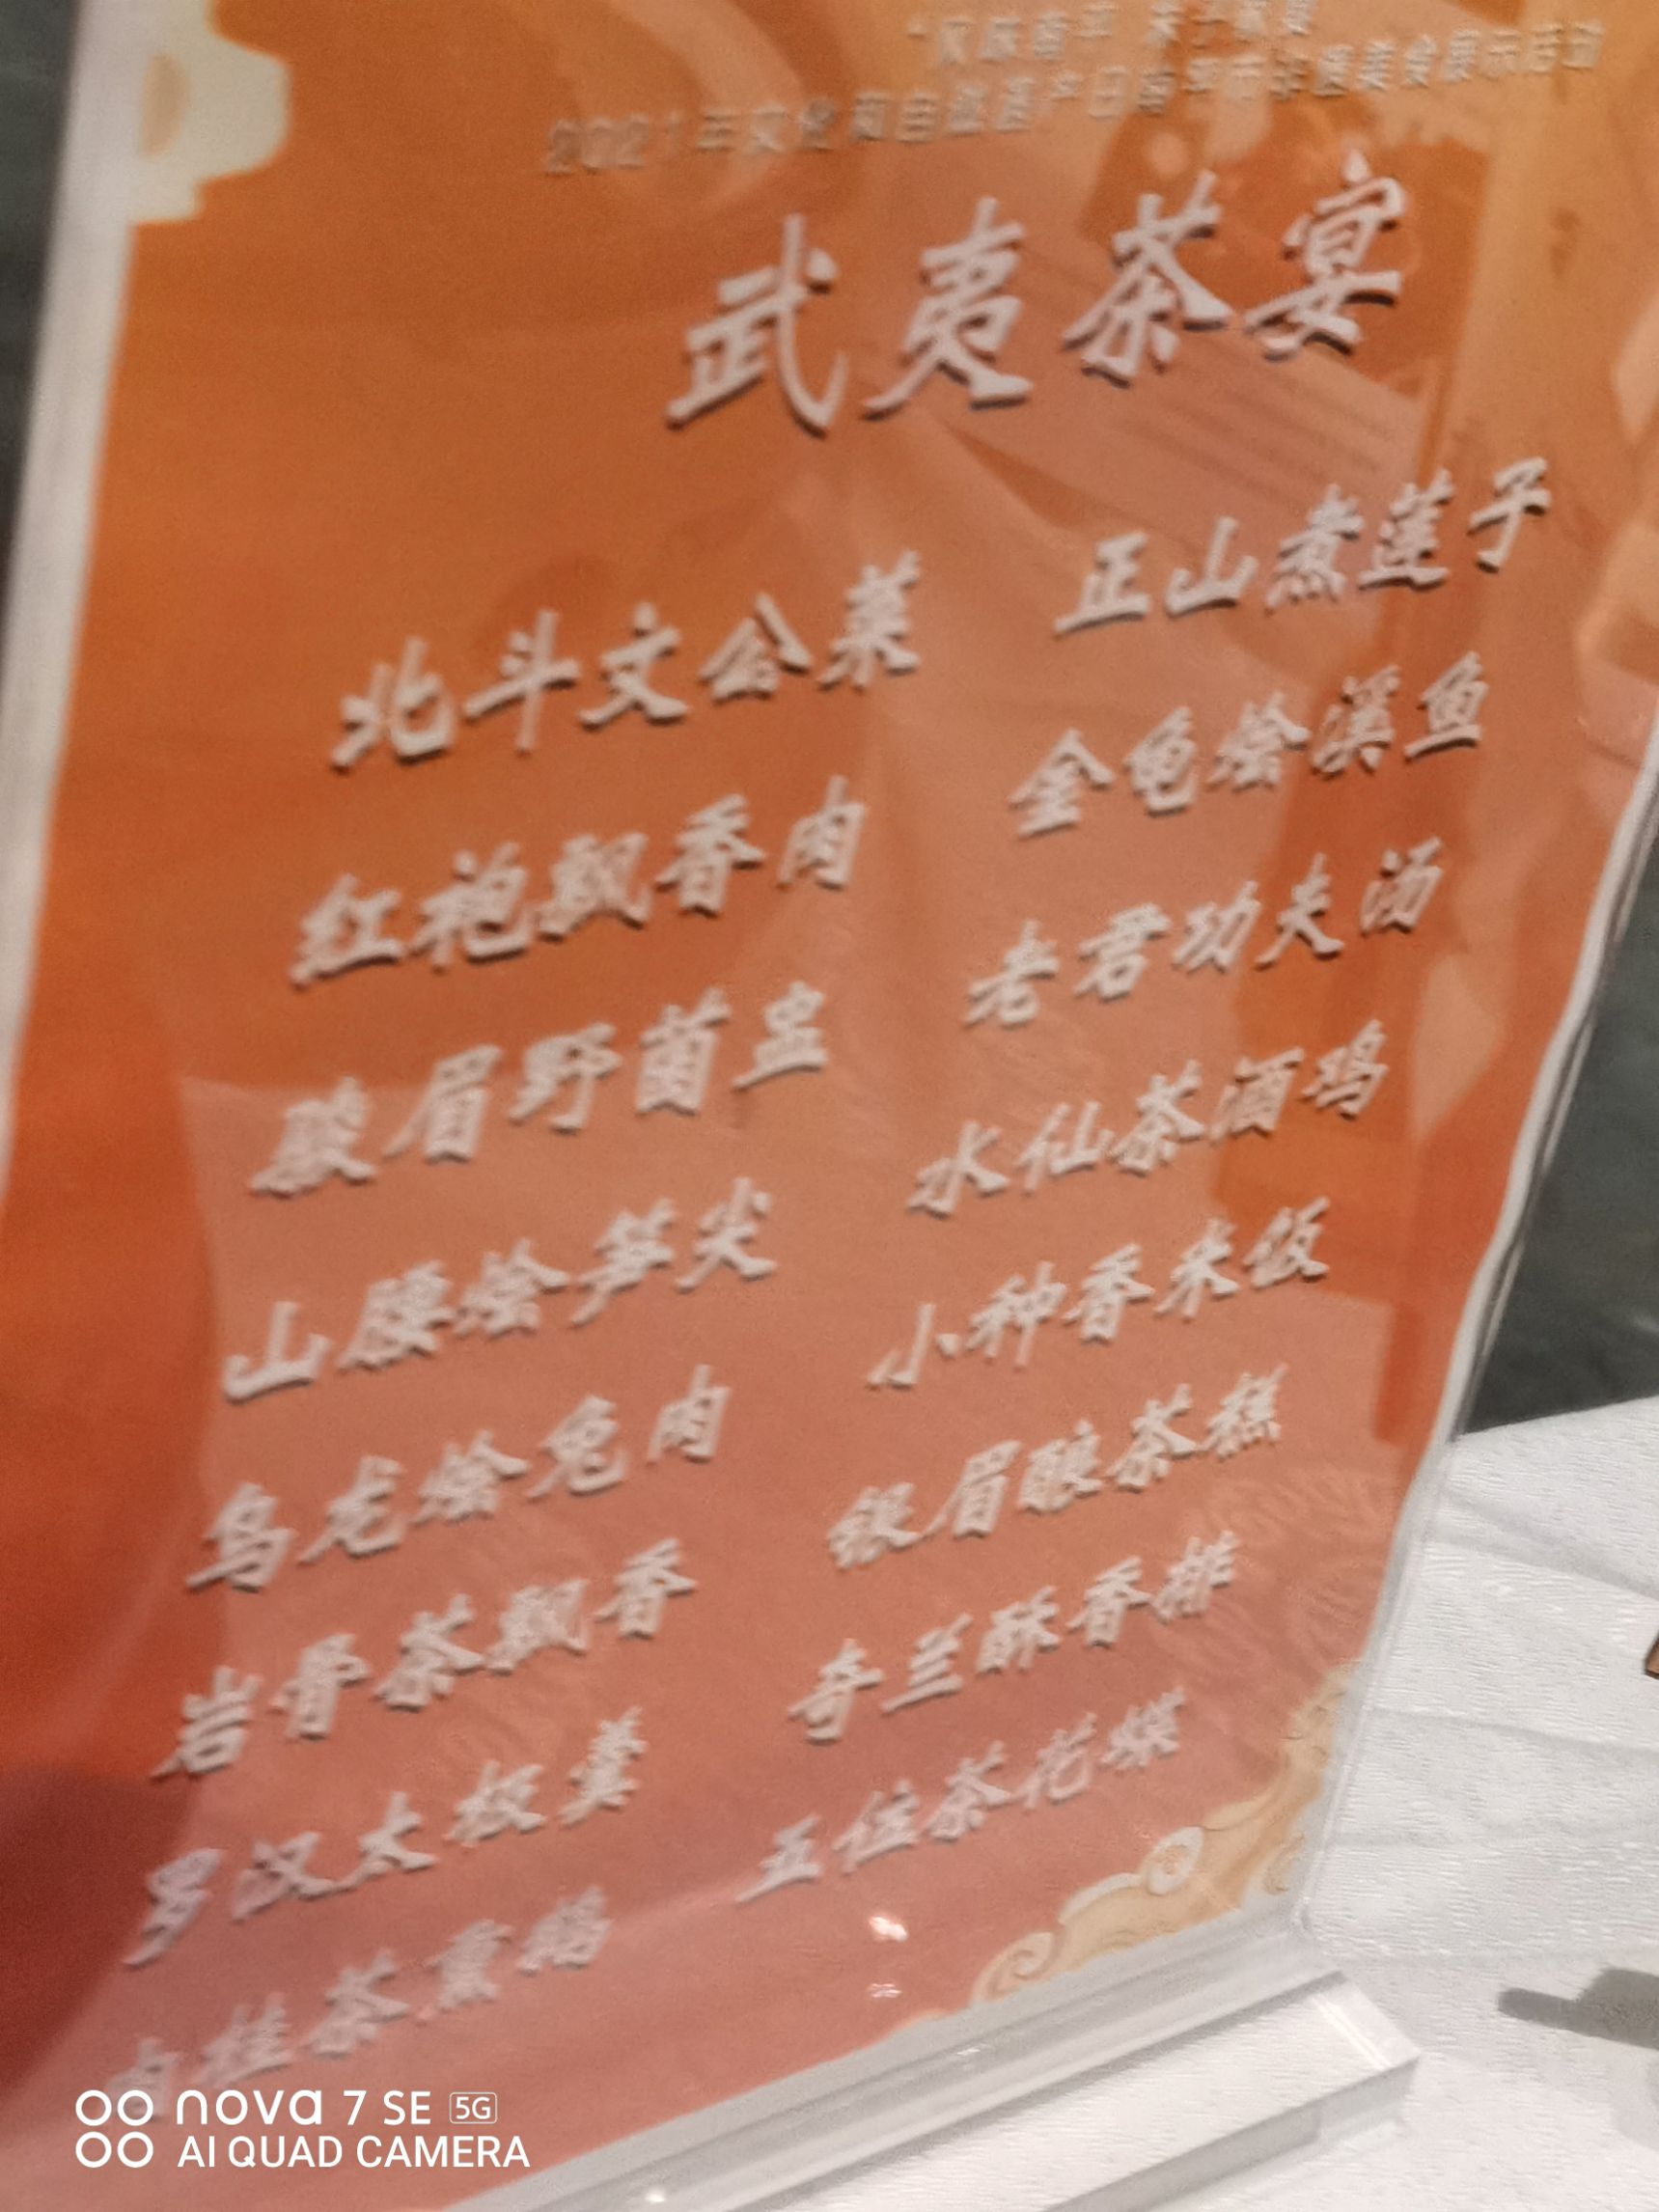 2021年文化和自然遗产日南平市非遗美食展示活动
武夷茶宴
北斗文公菜
红袍飘香肉
骏眉野菌盅
山腰烩笋尖
乌龙烩兔肉
岩骨茶飘香
罗汉太极羹
肉桂茶熏鹅
正山煮莲子
金龟烩溪鱼
老君功夫汤
水仙茶酒鸡
小种香米饭
银眉酿茶糕
奇兰酥香排
五位茶花
nova 7 SE 5G
AI QUAD CAMERA